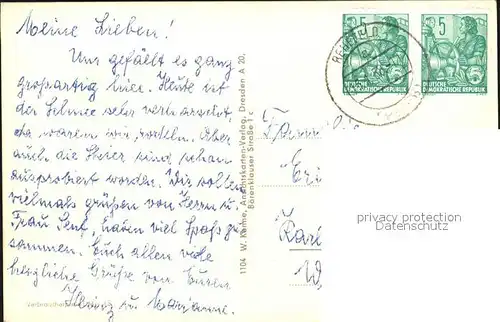 Meine Lieben!
Uns gefällt es ganz
großartig hier. Heute ist
der Schnee sehr verharscht,
da waren wir rodeln. Aber
auch die Skier sind schon
ausprobiert worden. Wir sollen
vielmals grüßen von Herrn u.
Frau Senf, haben viel Spaß zu-
sammen. Euch allen viele
herzliche Grüße von Euren
Heinz u. Marianne.
1104 W. Kehne, Ansichtskarten-Verlag, Dresden A 20,
Bärenklauser Straße
5
DEUTSCHE
DEMOKRATISCHE REPUBLIK
5
DEUTSCHE
DEMOKRATISCHE REPUBLIK
Fam
privacy protection
Datenschutz